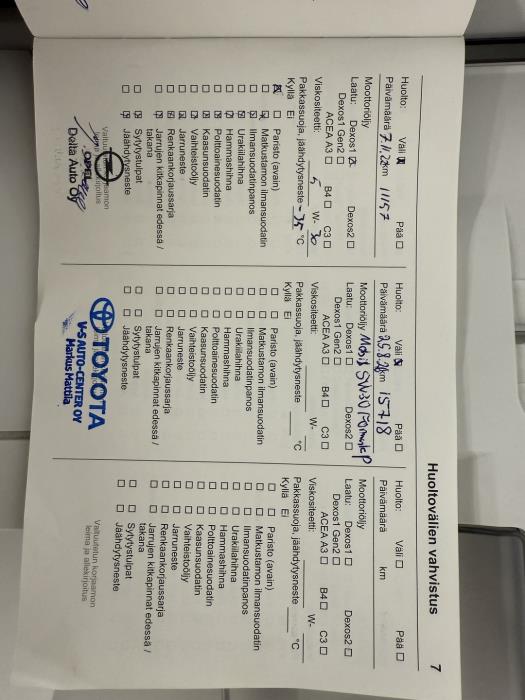 Huoltovälien vahvistus 7
Huolto: Väli ☒ Pää ☐
Päivämäärä 7.11.22 km 11157
Moottoriöljy
Laatu: Dexos1 ☒ Dexos2 ☐
Dexos1 Gen2 ☐
ACEA A3 ☐ B4 ☐ C3 ☐
Viskositeetti: 5 W- 30
Pakkassuoja, jäähdytysneste -35 °C
Kyllä Ei
Paristo (avain)
Matkustamon ilmansuodatin
Ilmansuodatinpanos
Urakiilahihna
Hammashihna
Polttoainesuodatin
Kaasunsuodatin
Vaihteistoöljy
Jarruneste
Renkaankorjaussarja
Jarrujen kitkapinnat edessä /
takana
Sytytystulpat
Jäähdytysneste
OPEL
Delta Auto Oy
Huolto: Väli ☒ Pää ☐
Päivämäärä 25.8. km 15718
Moottoriöljy Mobil 5W30 Formula P
Laatu: Dexos1 ☐ Dexos2 ☐
Dexos1 Gen2 ☐
ACEA A3 ☐ B4 ☐ C3 ☐
Viskositeetti: W-
Pakkassuoja, jäähdytysneste °C
Kyllä Ei
Paristo (avain)
Matkustamon ilmansuodatin
Ilmansuodatinpanos
Urakiilahihna
Hammashihna
Polttoainesuodatin
Kaasunsuodatin
Vaihteistoöljy
Jarruneste
Renkaankorjaussarja
Jarrujen kitkapinnat edessä /
takana
Sytytystulpat
Jäähdytysneste
TOYOTA
V-S AUTO-CENTER OY
Markus Mattila
Huolto: Väli ☐ Pää ☐
Päivämäärä km
Moottoriöljy
Laatu: Dexos1 ☐ Dexos2 ☐
Dexos1 Gen2 ☐
ACEA A3 ☐ B4 ☐ C3 ☐
Viskositeetti: W-
Pakkassuoja, jäähdytysneste °C
Kyllä Ei
Paristo (avain)
Matkustamon ilmansuodatin
Ilmansuodatinpanos
Urakiilahihna
Hammashihna
Polttoainesuodatin
Kaasunsuodatin
Vaihteistoöljy
Jarruneste
Renkaankorjaussarja
Jarrujen kitkapinnat edessä /
takana
Sytytystulpat
Jäähdytysneste
Valtuutetun korjaamon
leima ja allekirjoitus